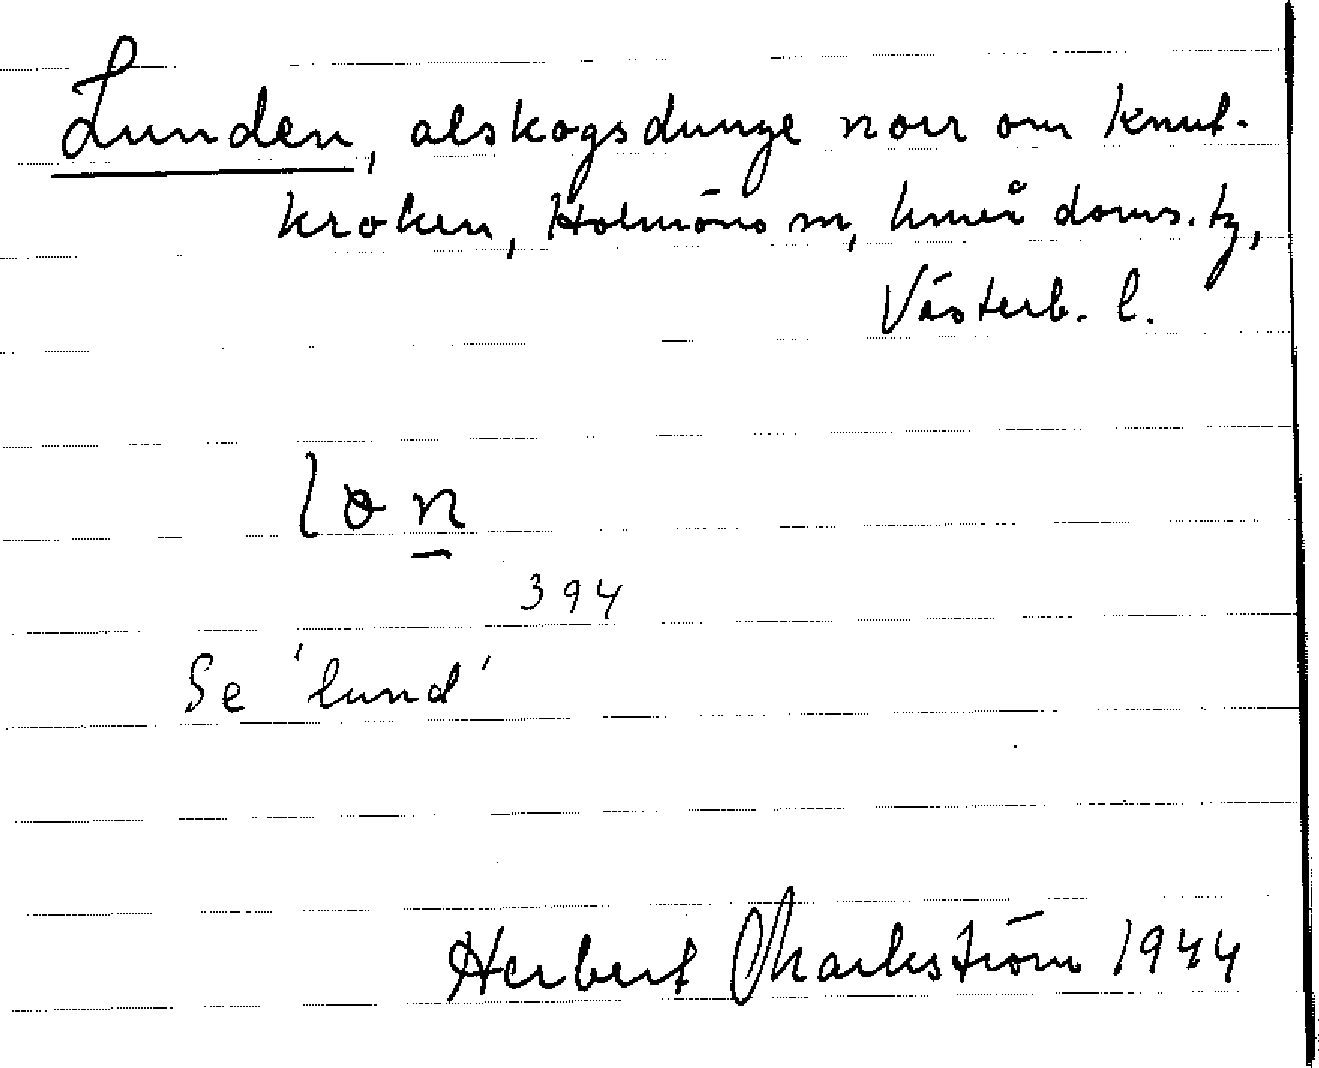 Lunden, alskogsdunge norr om Knut-
kroken, Holmöns sn, Umeå doms. tg,
Västerb. l.
lɵn
394
Se 'lund'
Herbert Markström 1944